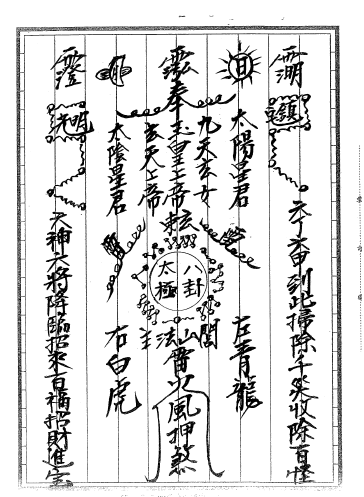 六丁六甲到此掃除千災收除百怪
日
太陽星君
左青龍
九天玄女
奉玉皇上帝敕
玄天上帝
太陰星君
月
右白虎
八卦
太極
閭山法主
雷火風押煞
六神六將降臨招來百福招財進宝